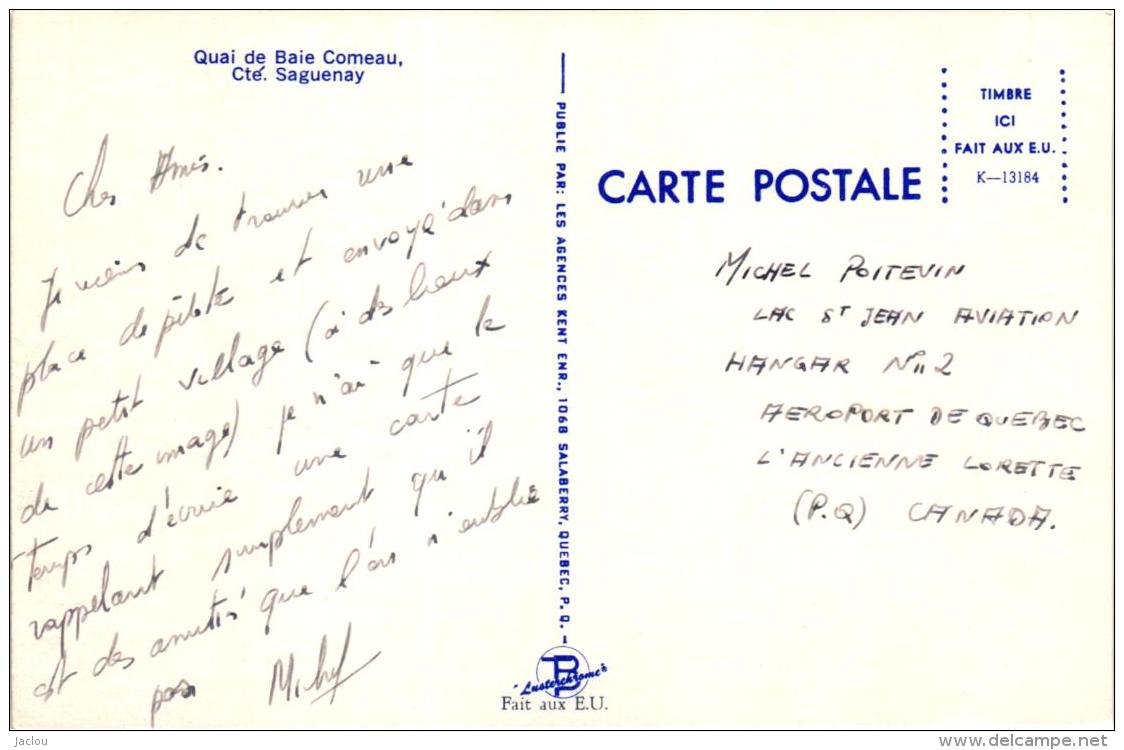 Quai de Baie Comeau,
Cté. Saguenay
Chers Amis.
Je viens de trouver une
place de pilote et envoyé dans
un petit village (à des lieux
de cette image) je n'ai que le
temps d'écrire une carte
rappelant simplement qu'il
est des amitiés que l'on n'oublie
pas Michel
PUBLIE PAR: LES AGENCES KENT ENR., 1068 SALABERRY, QUEBEC, P. Q.
"Lusterchrome"
Fait aux E.U.
TIMBRE
ICI
FAIT AUX E.U.
K—13184
CARTE POSTALE
MICHEL POITEVIN
LAC ST JEAN AVIATION
HANGAR N° 2
AEROPORT DE QUEBEC
L'ANCIENNE LORETTE
(P.Q) CANADA.
Jaclou
www.delcampe.net